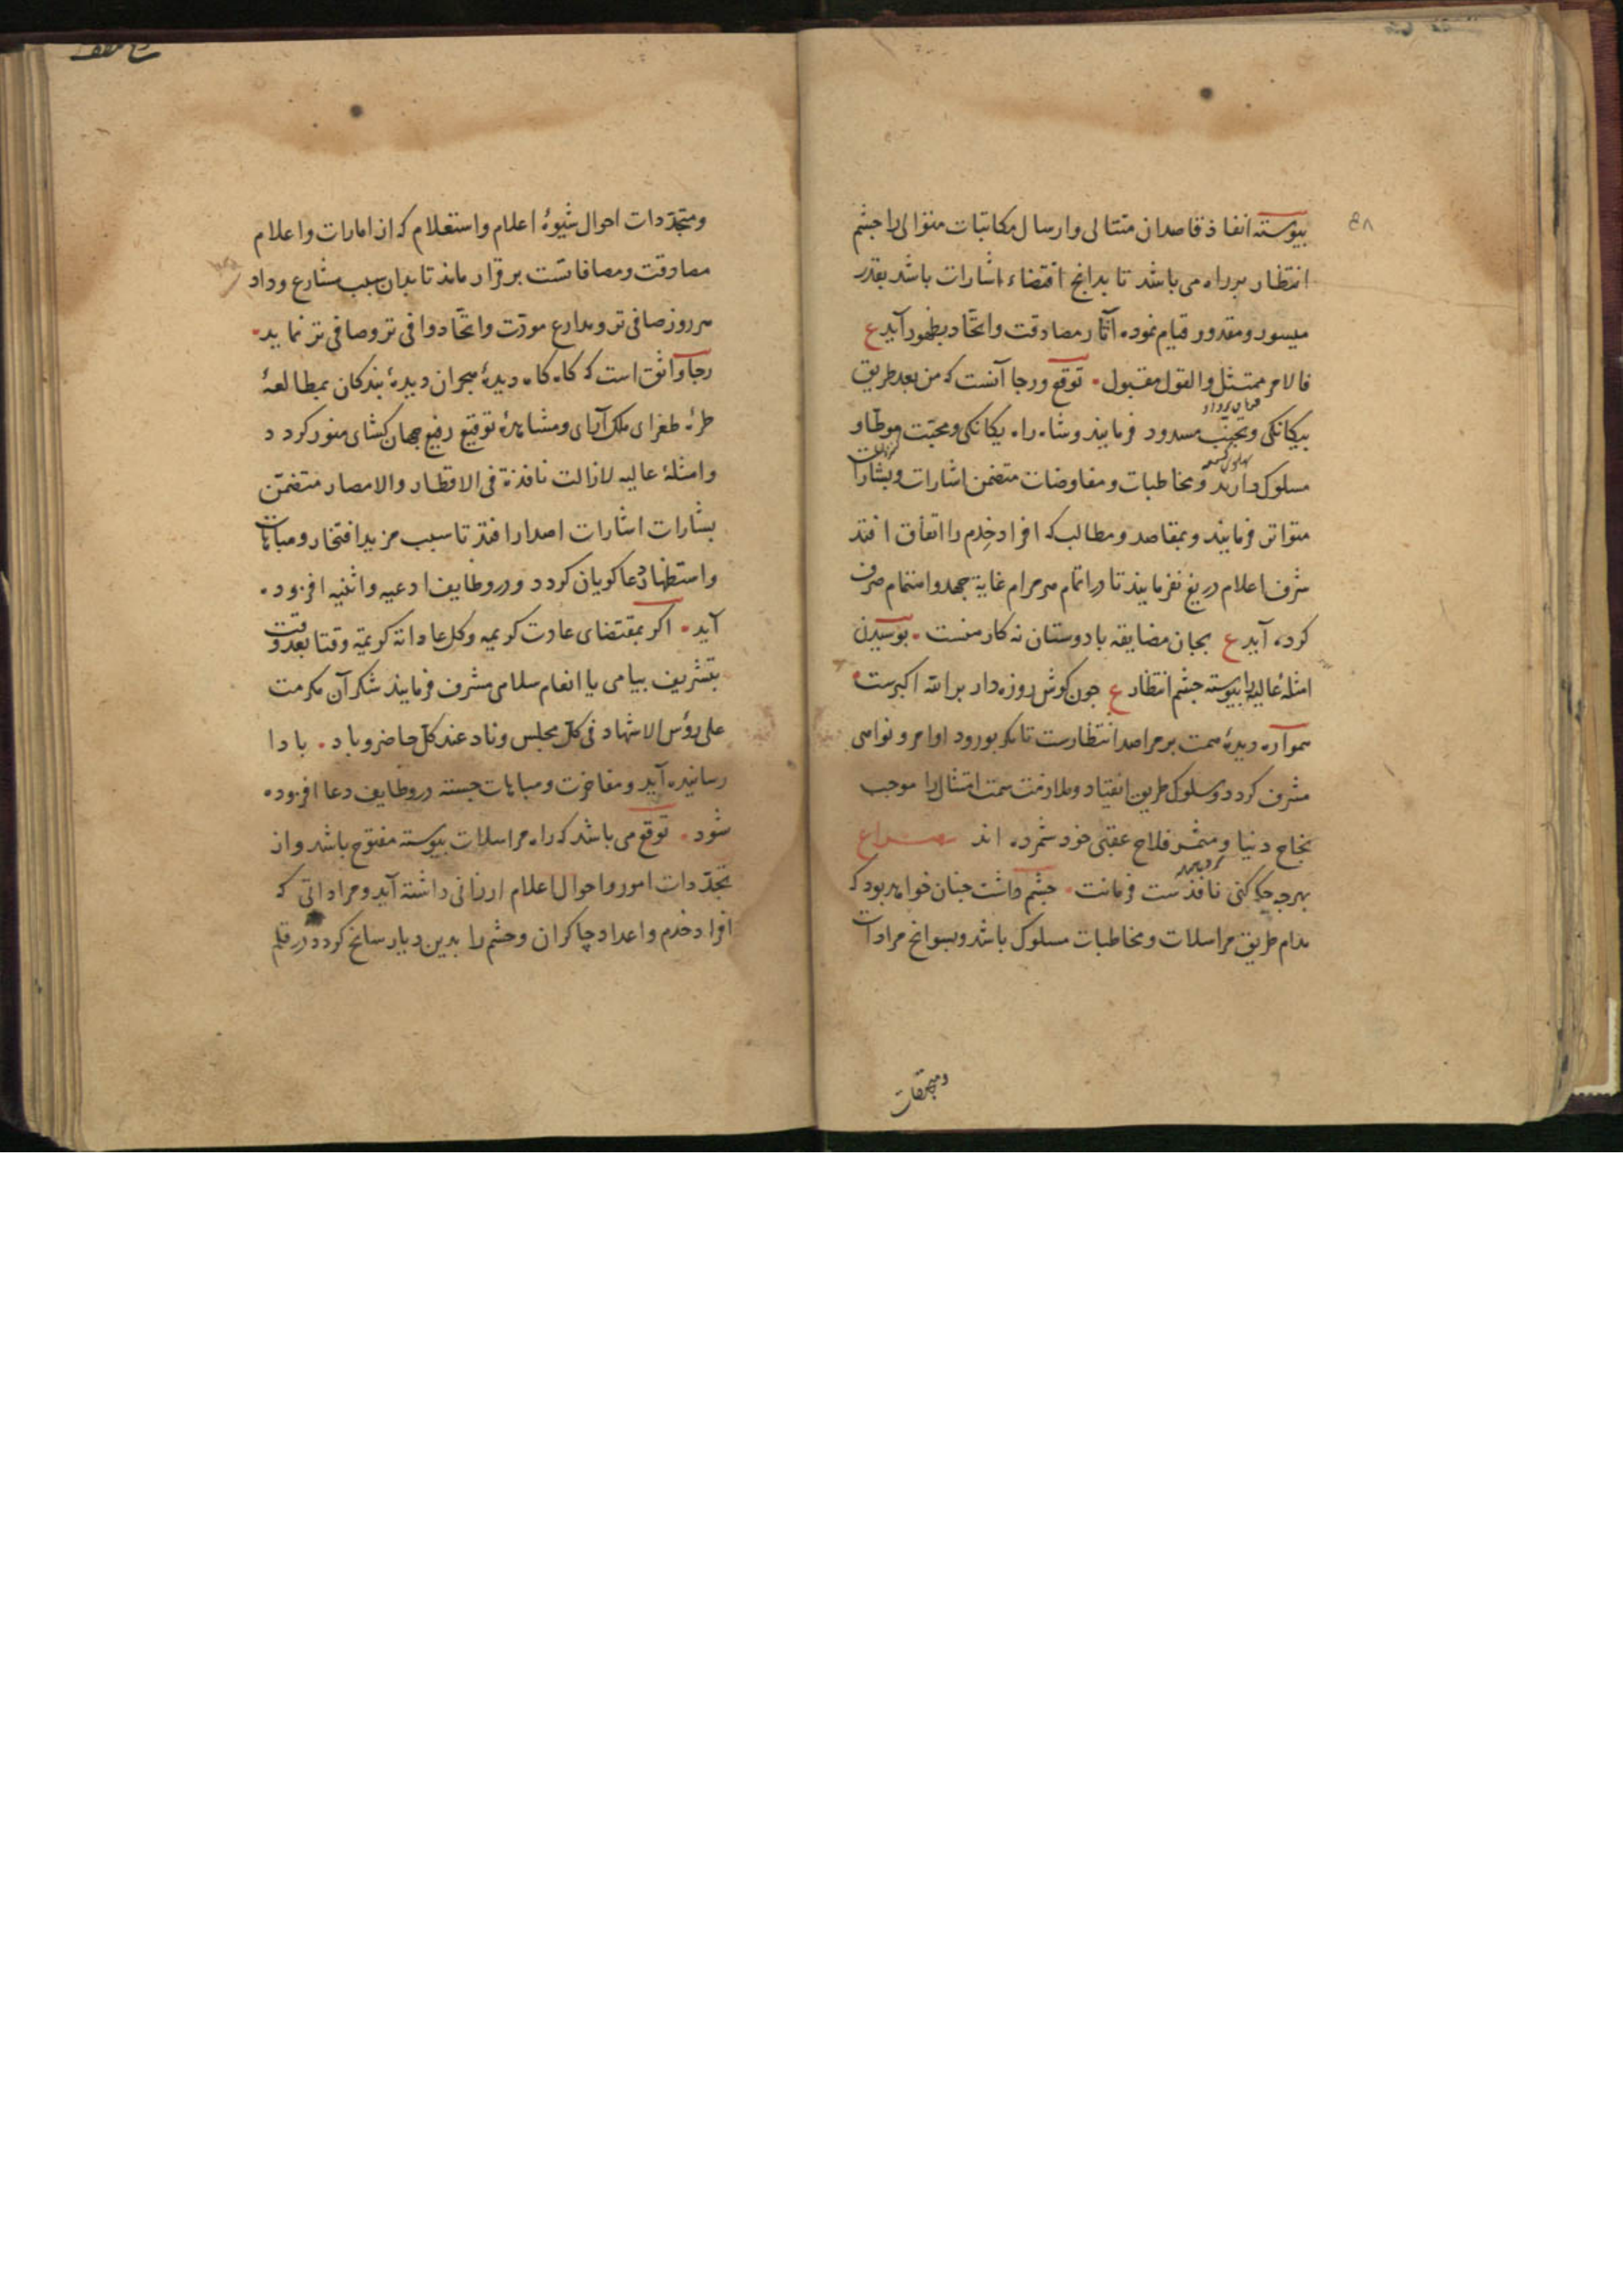 ۴۸
پیوسته انفاذ قاصدان متتالی وارسال مکاتبات متوالی را چشم
انتظار بر راه می باشد تا بدانچ اقتضاء اشارات باشد بقدر
میسور و مقدور قیام نموده آثار مصادقت واتحاد بظهور آید ع
فالامر ممتثل والقول مقبول توقع ورجا آنست که من بعد طریق
بیکانکی وتجنب مسدود فرمایند وشاه راه یکانکی ومحبت موطا و
مسلوک دارند ومخاطبات ومفاوضات متضمن اشارات وبشارات
متواتر فرمایند وبمقاصد ومطالب که افراد خدم را اتفاق افتد
شرف اعلام دریغ نفرمایند تا در اتمام هر مرام غایة جهد واهتمام صرف
کرده آید ع بجان مضایقه با دوستان نه کار منست بوسیدن
امثلهٔ عالیه را پیوسته چشم انتظار ع چون کوش روزه دار بر الله اکبرست
همواره دیدهٔ همت بر مراصد انتظارست تا بورود اوامر ونواهی
مشرف کردد وسلوک طریق انقیاد وملازمت سمت امتثال را موجب
نجاح دنیا ومثمر فلاح عقبی خود شمرده اند مصراع
بهرچه حکم کنی نافذست فرمانت چشم داشت چنان خواهد بود که
مدام طریق مراسلات ومخاطبات مسلوک باشد وبسوانح مرادات
ومتجددات احوال شیوهٔ اعلام واستعلام که از امارات واعلام
مصادقت ومصافاتست برقرار ماند تا بدان سبب مشارع وداد
هر روز صافی تر ومدارع مودت واتحاد وافی تر وصافی تر نماید
رجا واثق است که کاه کاه دیدهٔ هجران دیدهٔ بندکان بمطالعهٔ
طرهٔ طغرای ملک آرای ومشاهدهٔ توقیع رفیع جهان کشای منور کردد
وامثلهٔ عالیه لازالت نافذة فی الاقطار والامصار متضمن
بشارات اشارات اصدار افتد تا سبب مزید افتخار ومباهات
واستظهار دعا کویان کردد ودر وظایف ادعیه واثنیه افزوده
آید اکر بمقتضای عادت کریمه وکل عاداته کریمة وقتا بعد وقت
بتشریف پیامی یا انعام سلامی مشرف فرمایند شکر آن مکرمت
علی رؤس الاشهاد فی کل مجلس وناد عند کل حاضر وباد بادا
رسانیده آید ومفاخرت ومباهات جسته در وظایف دعا افزوده
شود توقع می باشد که راه مراسلات پیوسته مفتوح باشد واز
تجددات امور واحوال اعلام ارزانی داشته آید ومراداتی که
افراد خدم واعداد چاکران وحشم را بدین دیار سانح کردد در قلم